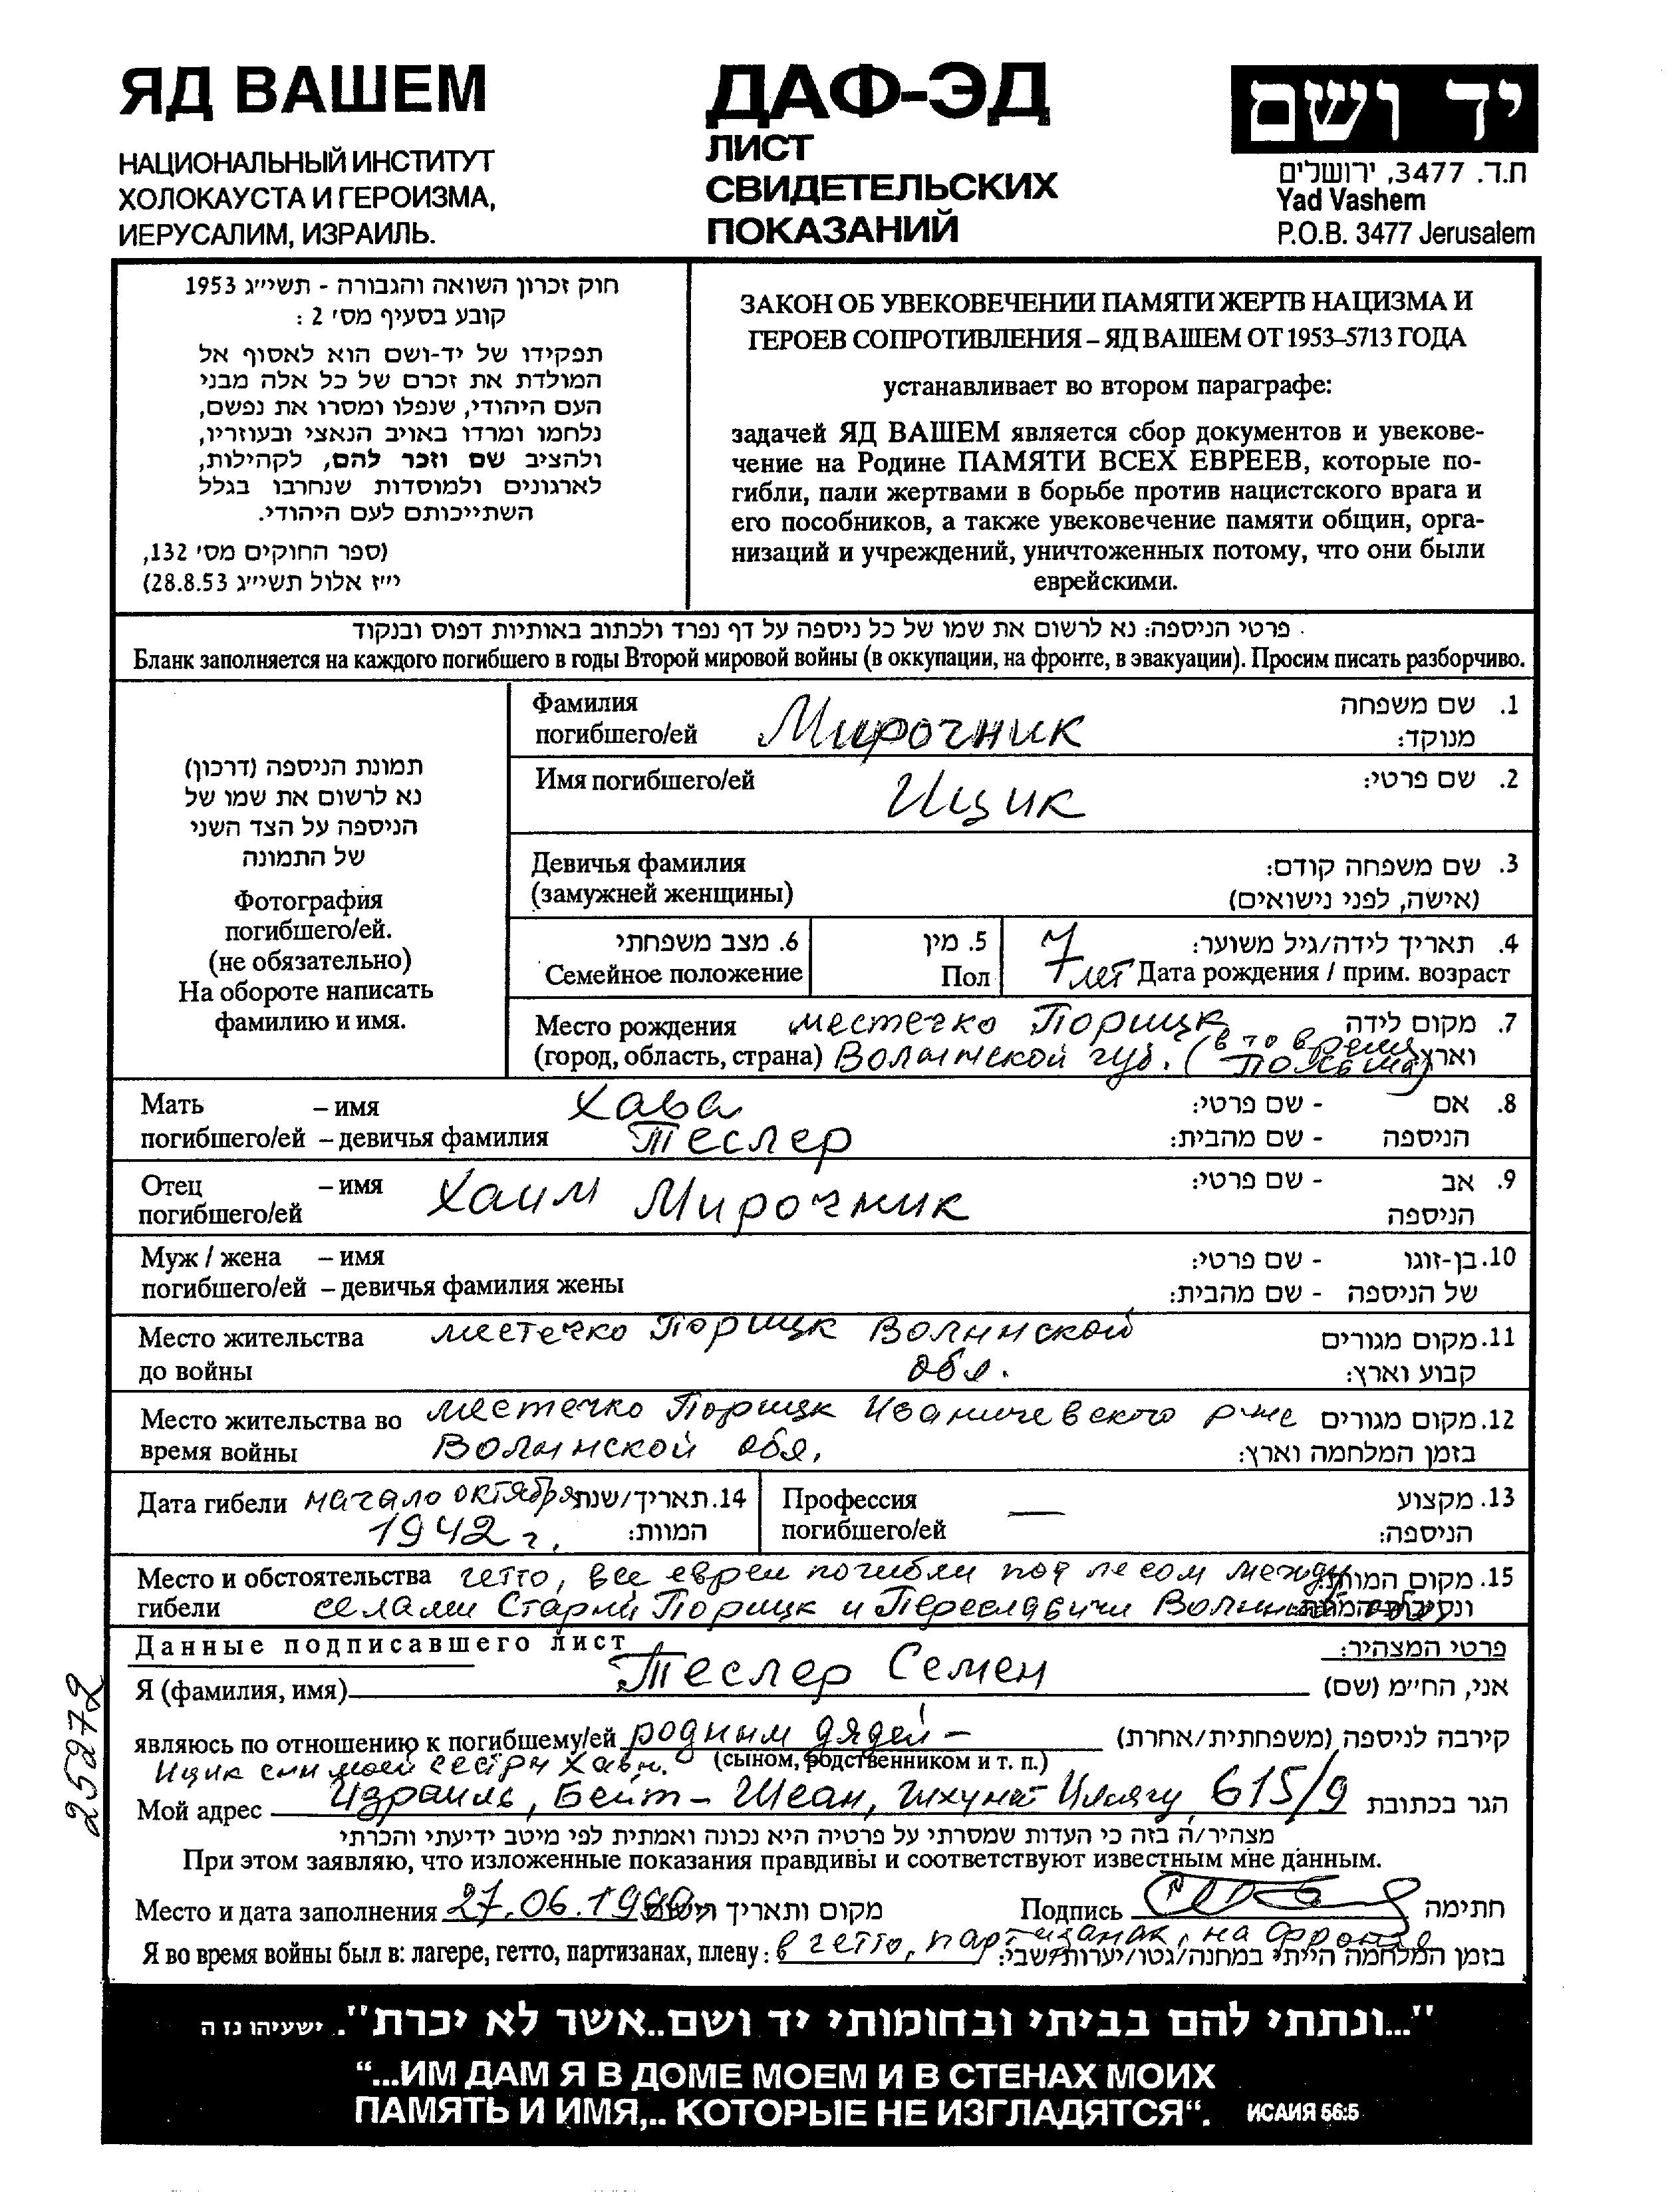 ЯД ВАШЕМ
НАЦИОНАЛЬНЫЙ ИНСТИТУТ
ХОЛОКАУСТА И ГЕРОИЗМА,
ИЕРУСАЛИМ, ИЗРАИЛЬ.
ДАФ-ЭД
ЛИСТ
СВИДЕТЕЛЬСКИХ
ПОКАЗАНИЙ
יד ושם
ת.ד. 3477, ירושלים
Yad Vashem
P.O.B. 3477 Jerusalem
חוק זכרון השואה והגבורה - תשי״ג 1953
קובע בסעיף מס׳ 2 :
תפקידו של יד-ושם הוא לאסוף אל
המולדת את זכרם של כל אלה מבני
העם היהודי, שנפלו ומסרו את נפשם,
נלחמו ומרדו באויב הנאצי ובעוזריו,
ולהציב שם וזכר להם, לקהילות,
לארגונים ולמוסדות שנחרבו בגלל
השתייכותם לעם היהודי.
(ספר החוקים מס׳ 132,
י״ז אלול תשי״ג 28.8.53)
ЗАКОН ОБ УВЕКОВЕЧЕНИИ ПАМЯТИ ЖЕРТВ НАЦИЗМА И
ГЕРОЕВ СОПРОТИВЛЕНИЯ – ЯД ВАШЕМ ОТ 1953–5713 ГОДА
устанавливает во втором параграфе:
задачей ЯД ВАШЕМ является сбор документов и увекове-
чение на Родине ПАМЯТИ ВСЕХ ЕВРЕЕВ, которые по-
гибли, пали жертвами в борьбе против нацистского врага и
его пособников, а также увековечение памяти общин, орга-
низаций и учреждений, уничтоженных потому, что они были
еврейскими.
פרטי הניספה: נא לרשום את שמו של כל ניספה על דף נפרד ולכתוב באותיות דפוס ובנקוד
Бланк заполняется на каждого погибшего в годы Второй мировой войны (в оккупации, на фронте, в эвакуации). Просим писать разборчиво.
תמונת הניספה (דרכון)
נא לרשום את שמו של
הניספה על הצד השני
של התמונה
Фотография
погибшего/ей.
(не обязательно)
На обороте написать
фамилию и имя.
Фамилия 1. שם משפחה
погибшего/ей Мирочник מנוקד:
Имя погибшего/ей Ицик 2. שם פרטי:
Девичья фамилия 3. שם משפחה קודם:
(замужней женщины) (אישה, לפני נישואים)
6. מצב משפחתי 5. מין 4. תאריך לידה/גיל משוער:
Семейное положение Пол 7 лет Дата рождения / прим. возраст
Место рождения местечко Порицк 7. מקום לידה
(город, область, страна) Волынской губ. (в то время Польша) וארץ
Мать – имя Хава 8. אם - שם פרטי:
погибшего/ей – девичья фамилия Теслер הניספה - שם מהבית:
Отец – имя Хаим Мирочник 9. אב - שם פרטי:
погибшего/ей הניספה
Муж / жена – имя 10. בן-זוגו - שם פרטי:
погибшего/ей – девичья фамилия жены של הניספה - שם מהבית:
Место жительства местечко Порицк Волынской 11. מקום מגורים
до войны обл. קבוע וארץ:
Место жительства во местечко Порицк Иваничевского р-на 12. מקום מגורים
время войны Волынской обл. בזמן המלחמה וארץ:
Дата гибели начало октября 14. תאריך/שנת
1942 г. המוות:
Профессия — 13. מקצוע
погибшего/ей הניספה:
Место и обстоятельства гетто, все евреи погибли под лесом между 15. מקום המוות
гибели селами Старый Порицк и Переславичи
Данные подписавшего лист פרטי המצהיר:
Я (фамилия, имя) Теслер Семен אני, הח״מ (שם)
являюсь по отношению к погибшему/ей родным дядей – קירבה לניספה (משפחתית/אחרת)
Ицик сын моей сестры Хавы. (сыном, родственником и т. п.)
Мой адрес Израиль, Бейт-Шеан, 615/9 הגר בכתובת
מצהיר/ה בזה כי העדות שמסרתי על פרטיה היא נכונה ואמתית לפי מיטב ידיעתי והכרתי
При этом заявляю, что изложенные показания правдивы и соответствуют известным мне данным.
Место и дата заполнения 27.06. מקום ותאריך Подпись חתימה
Я во время войны был в: лагере, гетто, партизанах, плену: в гетто, партизанах, на фронте
בזמן המלחמה הייתי במחנה/גטו/יערות/שבי:
25272
"...ונתתי להם בביתי ובחומותי יד ושם..אשר לא יכרת". ישעיהו נז ה
“...ИМ ДАМ Я В ДОМЕ МОЕМ И В СТЕНАХ МОИХ
ПАМЯТЬ И ИМЯ,.. КОТОРЫЕ НЕ ИЗГЛАДЯТСЯ“. ИСАИЯ 56:5